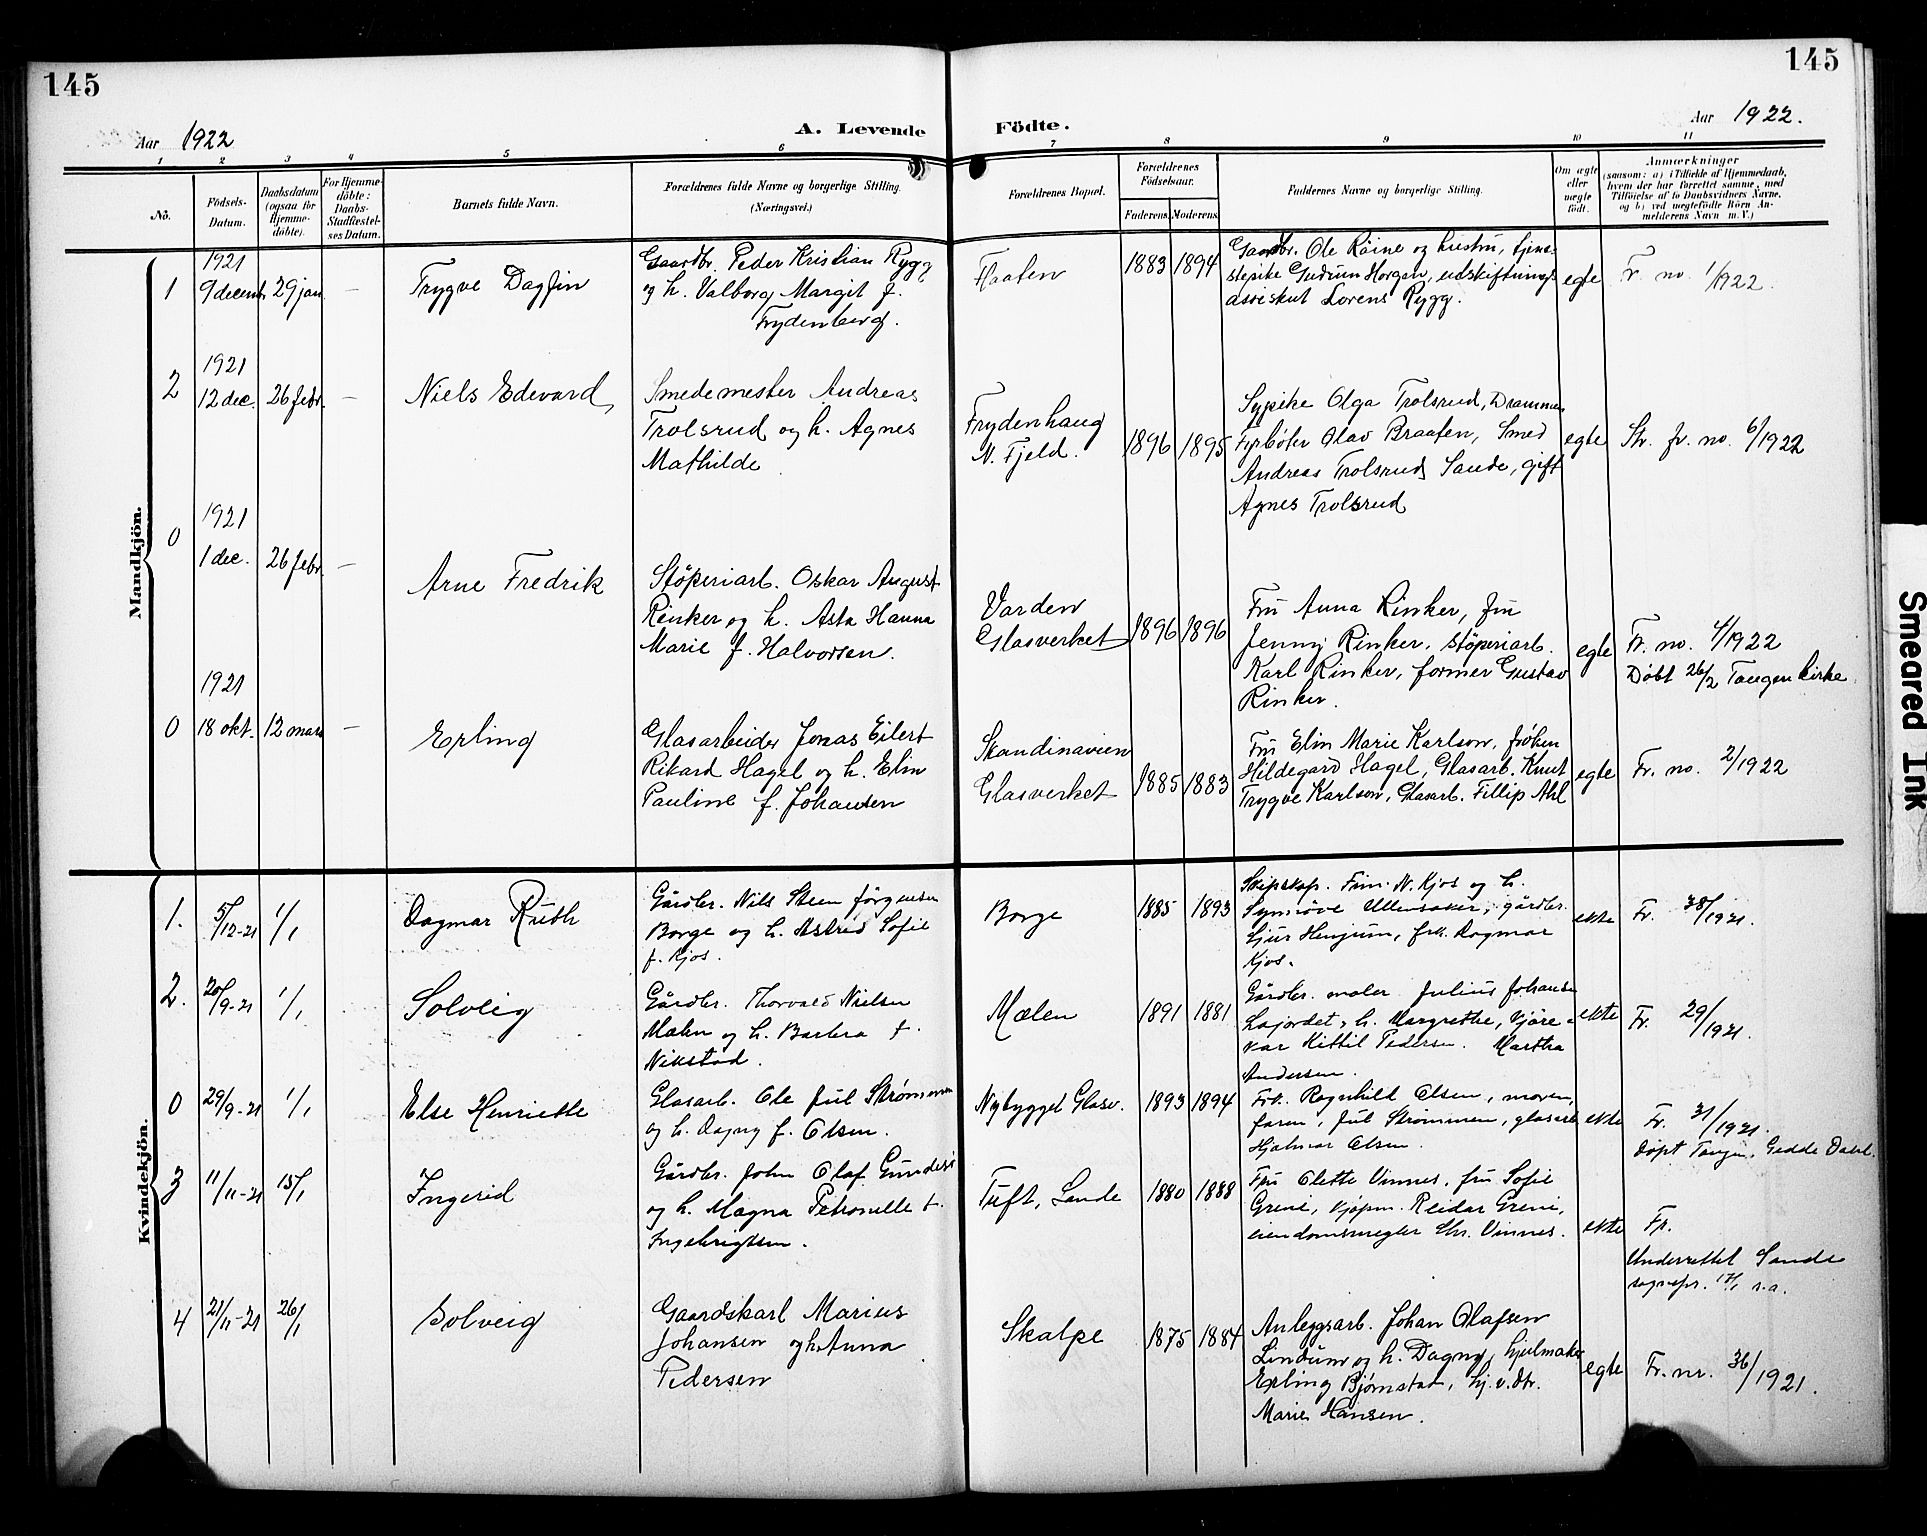 145
145
Aar 1922
A. Levende
Födte.
Aar 1922.
1
2
3
4
5
6
7
8
9
10
11
No.
Födsels-
Datum.
Daabsdatum
(ogsaa for
Hjemme-
döbte).
For Hjemme-
döbte:
Daabs-
Stadfæstel-
ses Datum.
Barnets fulde Navn.
Forældrenes fulde Navne og borgerlige Stilling.
(Næringsvei.)
Forældrenes Bopæl.
Forældrenes
Födselsaar.
Faderens.
Moderens.
Faddernes Navne og borgerlige Stilling.
Om ægte
eller
uægte
født.
Anmærkninger
(saasom: a) i Tilfælde af Hjemmedaab,
hvem der har forrettet samme, med
Tilføielse af to Daabsvidners Navne,
og b) ved uægtefödte Börn An-
melderens Navn m. V.)
Mandkjön.
1
1921
9 decemb.
29 jan
—
Trygve Dagfin
Gaardbr. Peder Kristian Rygg
og h. Valborg Margit f.
Frydenberg.
Flaaten
1883
1894
Gaardbr. Ole Röine og hustru, tjene-
stepike Gudrun Horgen, udskiftnings-
assiskut Lorens Rygg.
egte
Fr. no. 1/1922.
2
1921
12 dec.
26 febr.
—
Niels Edevard
Smedemester Andreas
Trolsrud og h. Agnes
Mathilde
Frydenhaug
N. Fjeld.
1896
1895
Sypike Olga Trolsrud, Drammen
Fyrböter Olav Braaten, Smed
Andreas Trolsrud Sande, gift
Agnes Trolsrud
egte
Str. fr. no. 6/1922
0
1921
1 dec.
26 febr.
—
Arne Fredrik
Stöperiarb. Oskar August
Rinker og h. Asta Hanna
Marie f. Halvorsen.
Varden
Glasverket
1896
1896
Fru Anna Rinker, fru
Jenny Rinker, stöperiarb.
Karl Rinker, former Gustav
Rinker.
egte
Fr. no. 4/1922
Döbt 26/2 Tangen kirke
0
1921
18 okt.
12 mars
—
Erling
Glasarbeider Jonas Eilert
Rikard Hagel og h. Elin
Pauline f. Johansen
Skandinavien
Glasverket
1885
1883
Fru Elin Marie Karlson, fröken
Hildegard Hagel, Glasarb. Knut
Trygve Karlson, Glasarb. Fillip Ahl
egte
Fr. no. 2/1922
Kvindekjön.
1.
5/12-21
1/1
Dagmar Ruth
Gårdbr. Nils Steen Jörgensen
Borge og h. Astrid Sofie
f. Kjos.
Borge
1885
1893
Skipskap. Finn N. Kjos og h.
Synnöve Ullensaker, gårdbr.
Sjur Henjum, frk. Dagmar
Kjos.
ekte
Fr. 38/1921.
2.
20/9-21
1/1
Solveig
Gårdbr. Thorvald Nielsen
Mælen og h. Barbra f.
Nikstad.
Mælen
1891
1881
Gårdbr. maler Julius Johansen
Lajordet, h. Margrethe, kjöre-
kar Kittil Pedersen. Martha
Andersen.
ekte
Fr. 29/1921.
0
29/9-21
1/1
Else Henriette
Glasarb. Ole Jul Strømmen
og h. Dagny f. Olsen.
Nybygget Glasv.
1893
1894
Frk. Ragnhild Olsen, moren,
faren, Jul Strømmen, glasarb.
Hjalmar Olsen.
ekte
Fr. 31/1921.
døpt Tangen, Gedde Dahl.
3
11/11-21
15/1
Ingerid
Gårdbr. John Olaf Gundesø
og h. Magna Petronelle f.
Ingebrigtsen.
Tuft, Sande
1880
1888
Fru Olette Vinnes, fru Sofie
Greni, kjøpm. Reidar Greni,
eiendomsmegler Chr. Vinnes.
ekte
Fr.
Underrettet Sande
sognepr. 17/1 s.a.
4
21/11-21
26/1
Solveig
Gaardskarl Marius
Johansen og h. Anna
Pedersen
Skalpe
1875
1884
Anleggsarb. Johan Olafsen
Lindum og h. Dagny, hjulmaker
Erling Bjørnstad, hj.v.dtr.
Marie Hansen.
egte
Fr. nr. 36/1921.
Smeared Ink